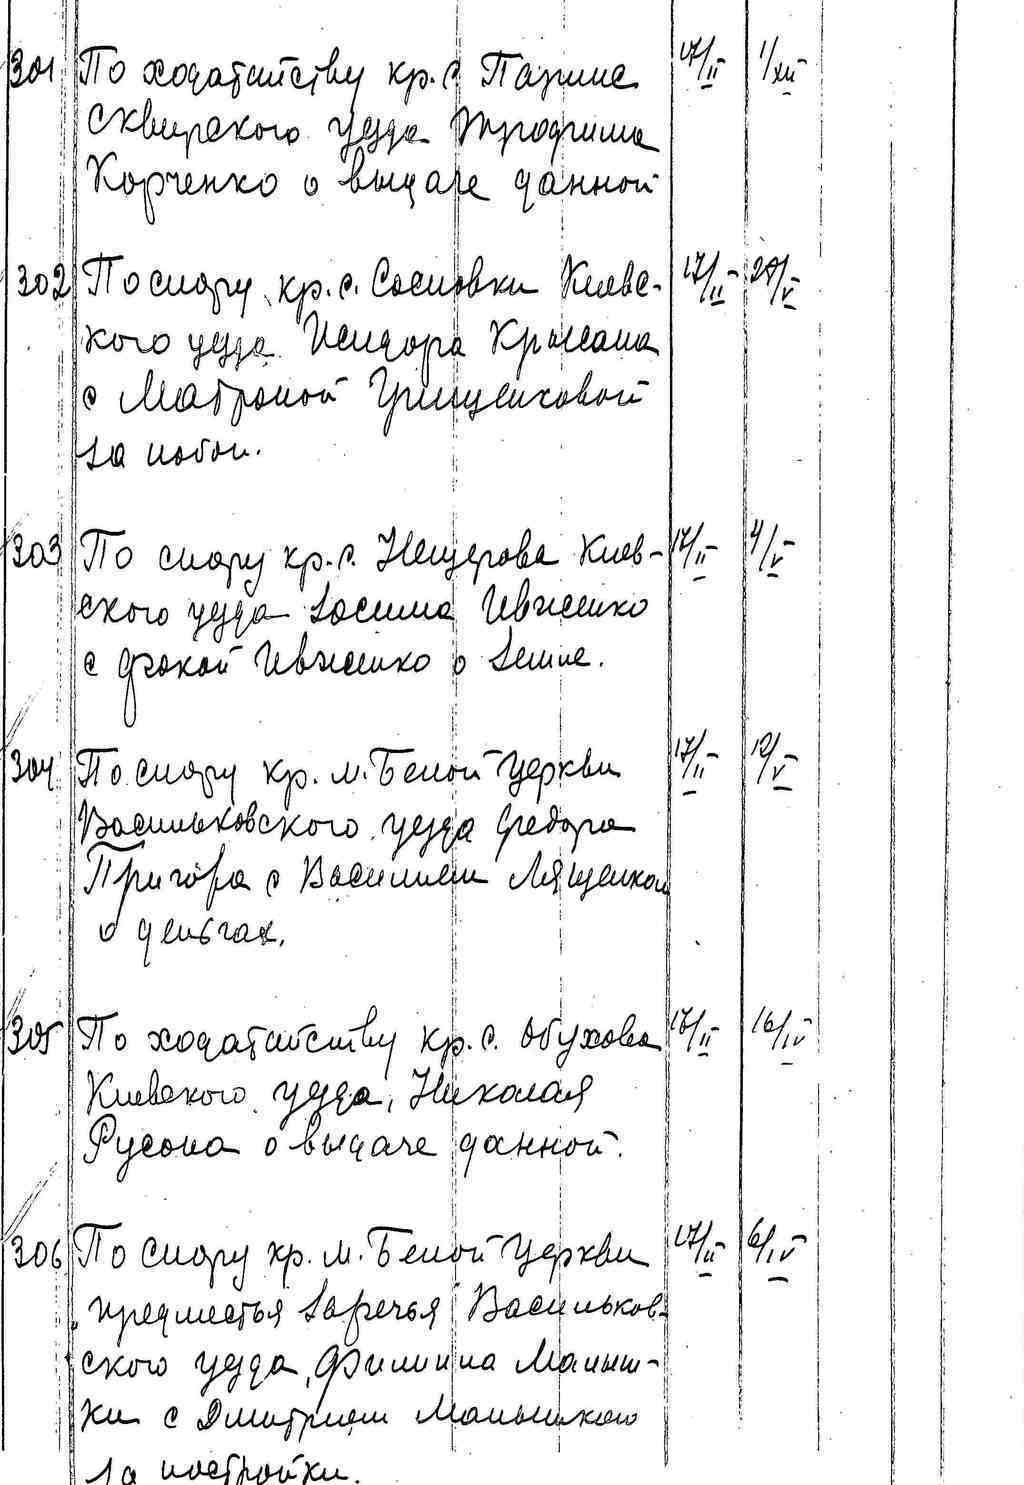 301 По ходатайству кр. с. Паришс 17/II 1/XII
Сквирского уезда Трофима
Корченко о выдаче данной
302 По спору кр. с. Сосновки Киевс- 17/II 28/V
кого уезда Исидора Крысана
с Матроной Грищенковой
за побои.
303 По спору кр. с. Нещерова Киев- 17/II 4/V
ского уезда Зосима Ивженко
с Фокой Ивженко о земле.
304 По спору кр. м. Белой Церкви 17/II 12/V
Васильковского уезда Федора
Пригора с Василием Лященком
о деньгах.
305 По ходатайству кр. с. Обухова 17/II 16/IV
Киевского уезда, Николая
Русона о выдаче данной.
306 По спору кр. м. Белой Церкви 17/II 6/IV
"предместья Заречья" Васильков-
ского уезда, Филиппа Малыш-
ки с Дмитрием Малышкою
за постройки.